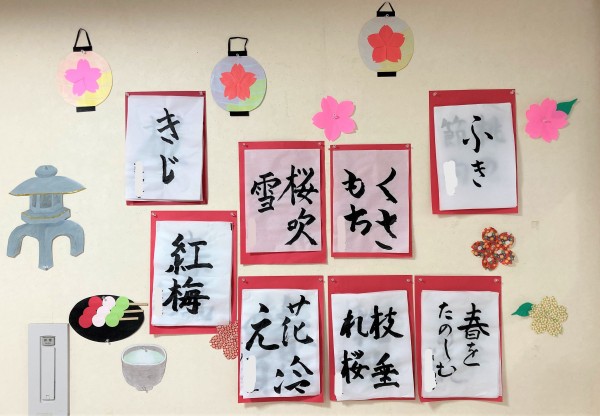 きじ
桜吹
雪
くさ
もち
ふき
紅梅
花冷
え
枝垂
れ桜
春を
たのしむ